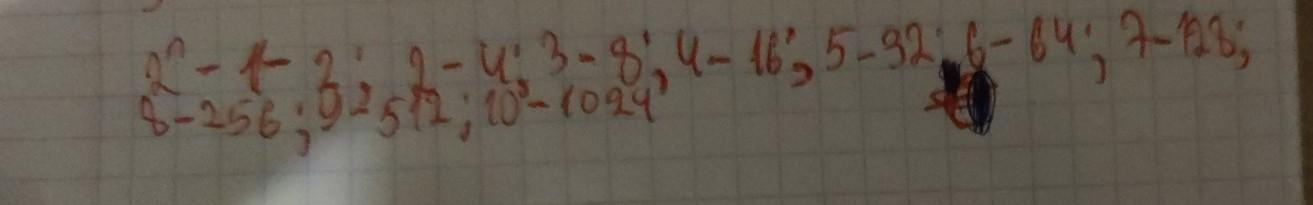 2ⁿ - 1 - 2; 2 - 4; 3 - 8; 4 - 16; 5 - 32; 6 - 64; 7 - 128;
8 - 256; 9 - 512; 10 - 1024